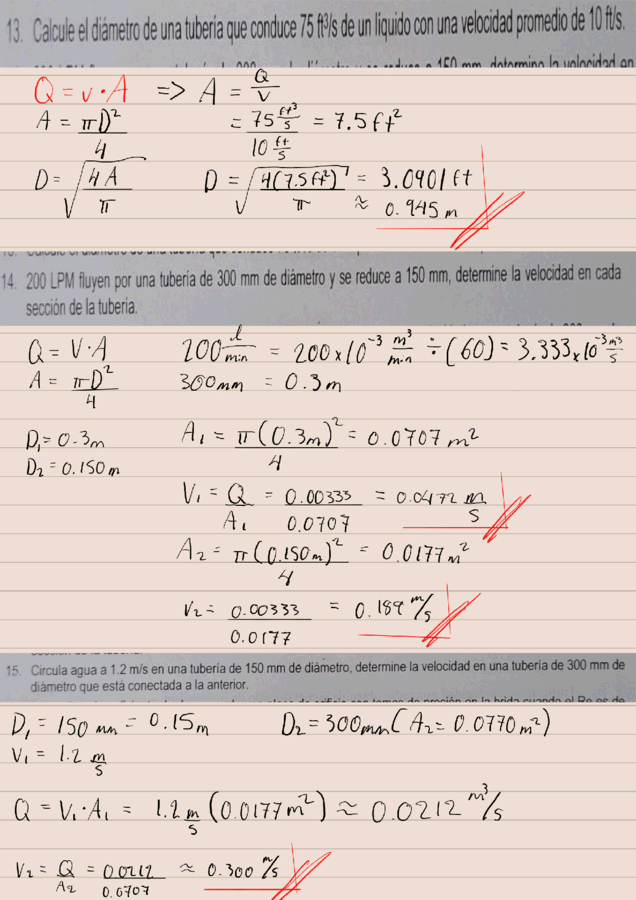 13. Calcule el diámetro de una tubería que conduce 75 ft³/s de un líquido con una velocidad promedio de 10 ft/s.
Q = v · A => A = Q/v
A = πD²/4 = 75 ft³/s / 10 ft/s = 7.5 ft²
D = √(4A/π) D = √(4(7.5 ft²)/π) = 3.0901 ft
≈ 0.945 m
14. 200 LPM fluyen por una tubería de 300 mm de diámetro y se reduce a 150 mm, determine la velocidad en cada
sección de la tubería.
Q = V · A 200 l/min = 200 x 10⁻³ m³/min ÷ (60) = 3.333 x 10⁻³ m³/s
A = πD²/4 300mm = 0.3 m
D₁ = 0.3m A₁ = π(0.3m)²/4 = 0.0707 m²
D₂ = 0.150 m
V₁ = Q/A₁ = 0.00333/0.0707 = 0.0472 m/s
A₂ = π(0.150m)²/4 = 0.0177 m²
V₂ = 0.00333/0.0177 = 0.189 m/s
15. Circula agua a 1.2 m/s en una tubería de 150 mm de diámetro, determine la velocidad en una tubería de 300 mm de
diámetro que está conectada a la anterior.
D₁ = 150 mm = 0.15m D₂ = 300mm (A₂ = 0.0770 m²)
V₁ = 1.2 m/s
Q = V₁ · A₁ = 1.2 m/s (0.0177 m²) ≈ 0.0212 m³/s
V₂ = Q/A₂ = 0.0212/0.0707 ≈ 0.300 m/s